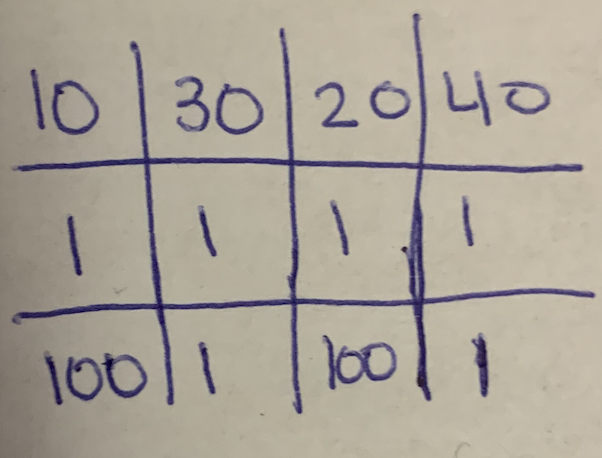 10 30 20 40
1 1 1 1
100 1 100 1